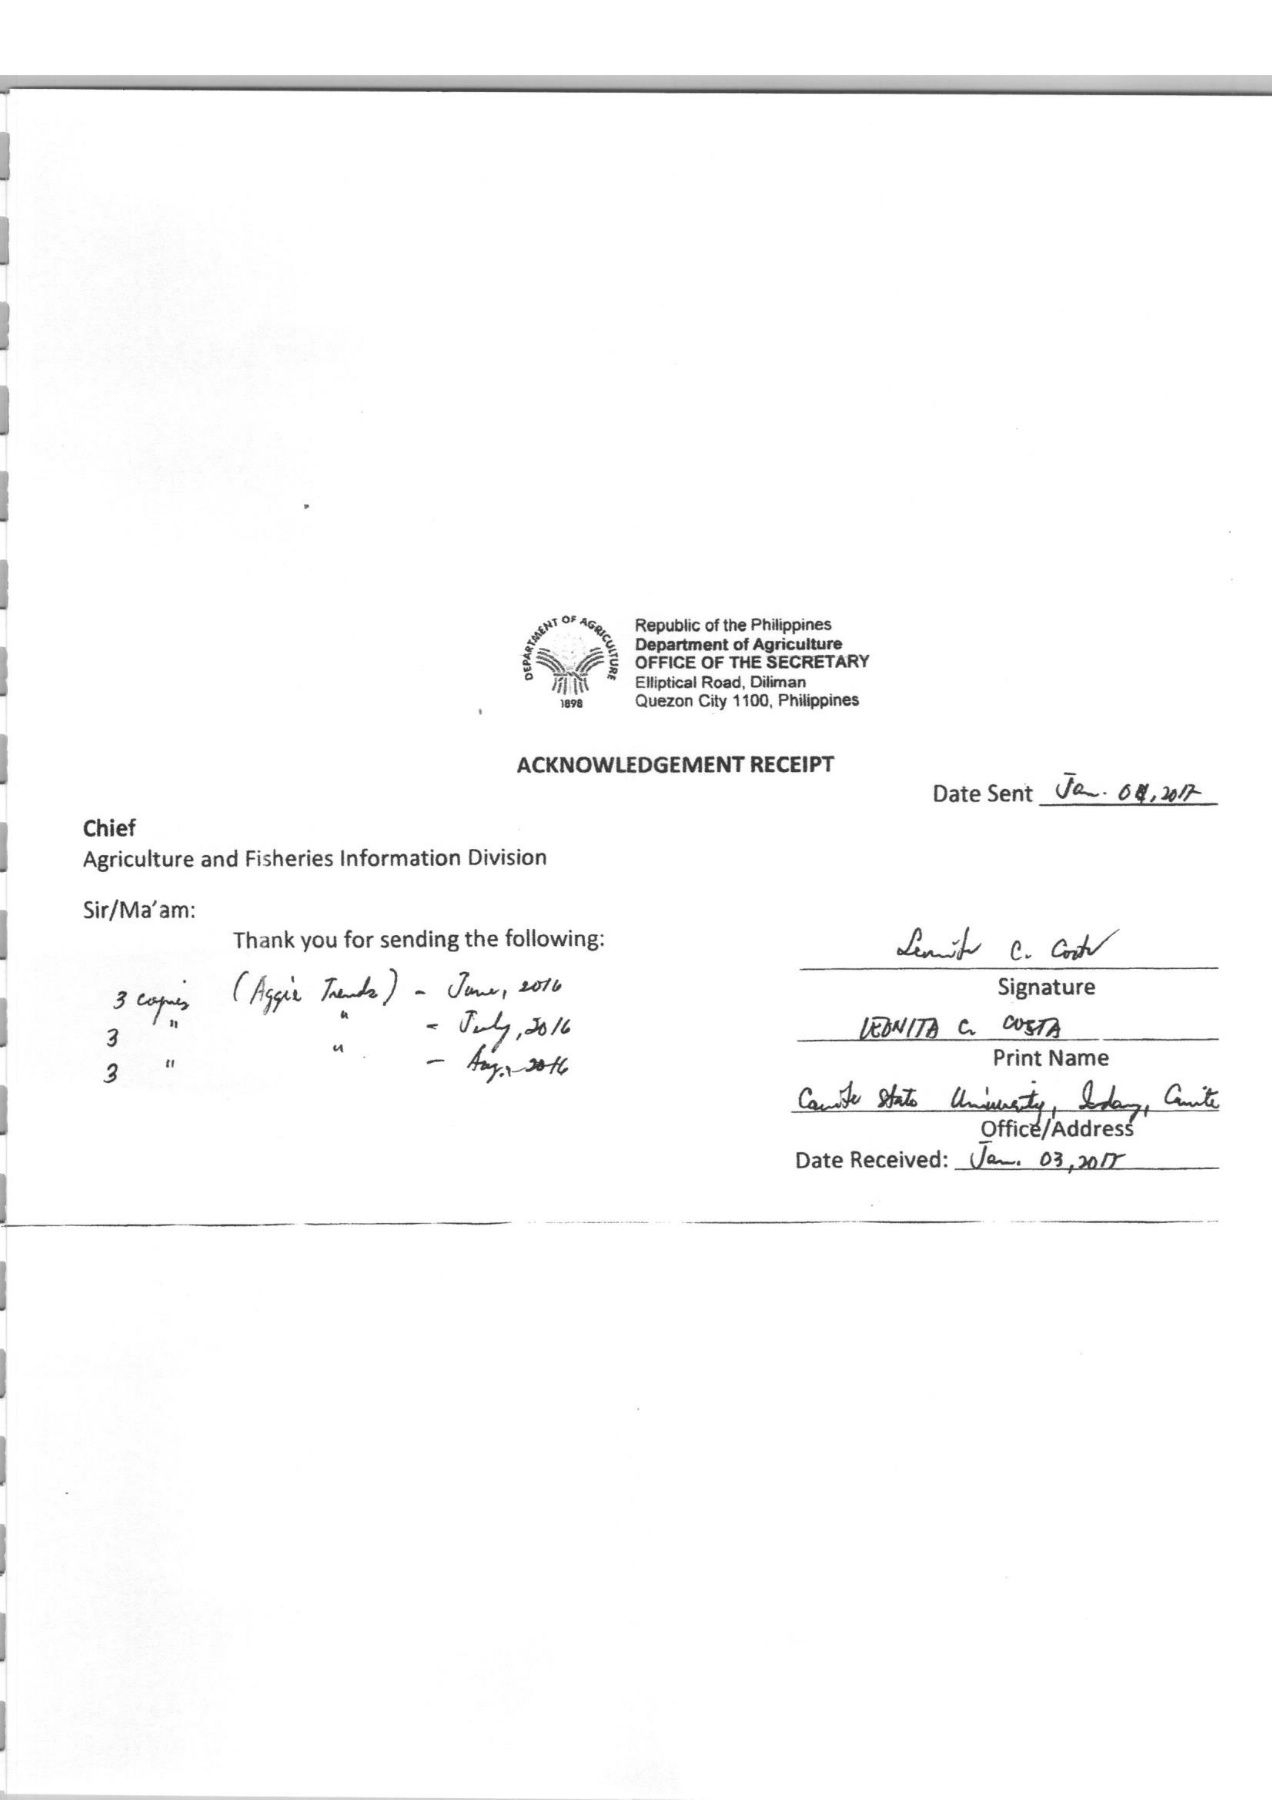 DEPARTMENT OF AGRICULTURE
1898
Republic of the Philippines
Department of Agriculture
OFFICE OF THE SECRETARY
Elliptical Road, Diliman
Quezon City 1100, Philippines
ACKNOWLEDGEMENT RECEIPT
Date Sent Jan. 04, 2017
Chief
Agriculture and Fisheries Information Division
Sir/Ma'am:
Thank you for sending the following:
3 copies (Aggie Trends) - June, 2016
3 " " - July, 2016
3 " " - Aug., 2016
C. Costa
Signature
C. COSTA
Print Name
Cavite State University, Indang, Cavite
Office/Address
Date Received: Jan. 03, 2017